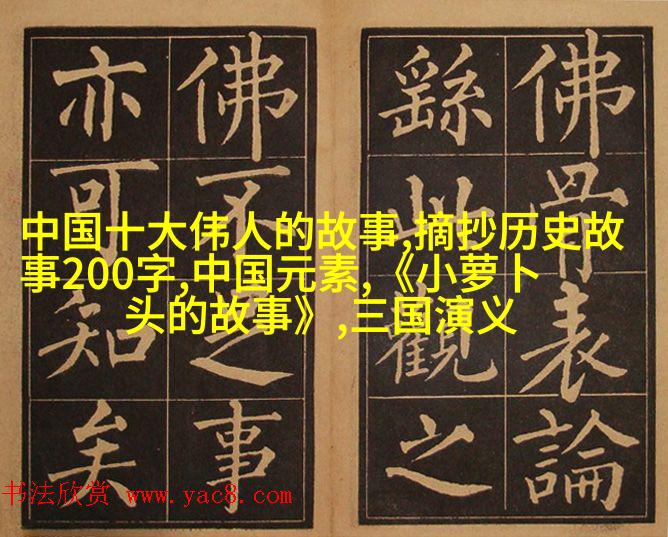 佛骨表論
繇此觀之
佛不足事
亦可知矣
中国十大伟人的故事,摘抄历史故
事200字,中国元素,《小萝卜
头的故事》,三国演义
书法欣赏 www.yac8.com